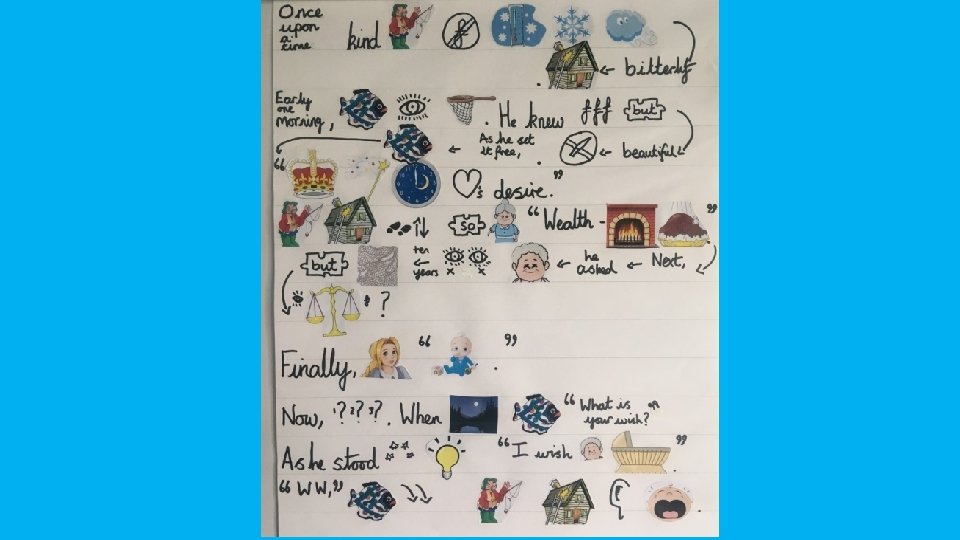 Once upon a time kind £
bitterly
Early one morning, . He knew £££ but
As he set it free, . beautiful
“ ♡'s desire.”
so “Wealth - ”
but ten years he asked Next,
?
Finally, “ ” .
Now, '? ? ?'. When “What is your wish?”
As he stood “I wish ” .
“WW,” .